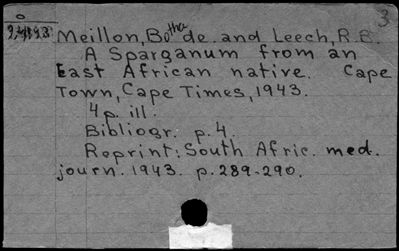 3
o
Meillon, Botha de and Leech, R.E.
A Sparganum from an
East African native. Cape
Town, Cape Times, 1943.
4 p. ill.
Bibliogr. p. 4.
Reprint: South Afric. med.
journ. 1943. p. 289-290.